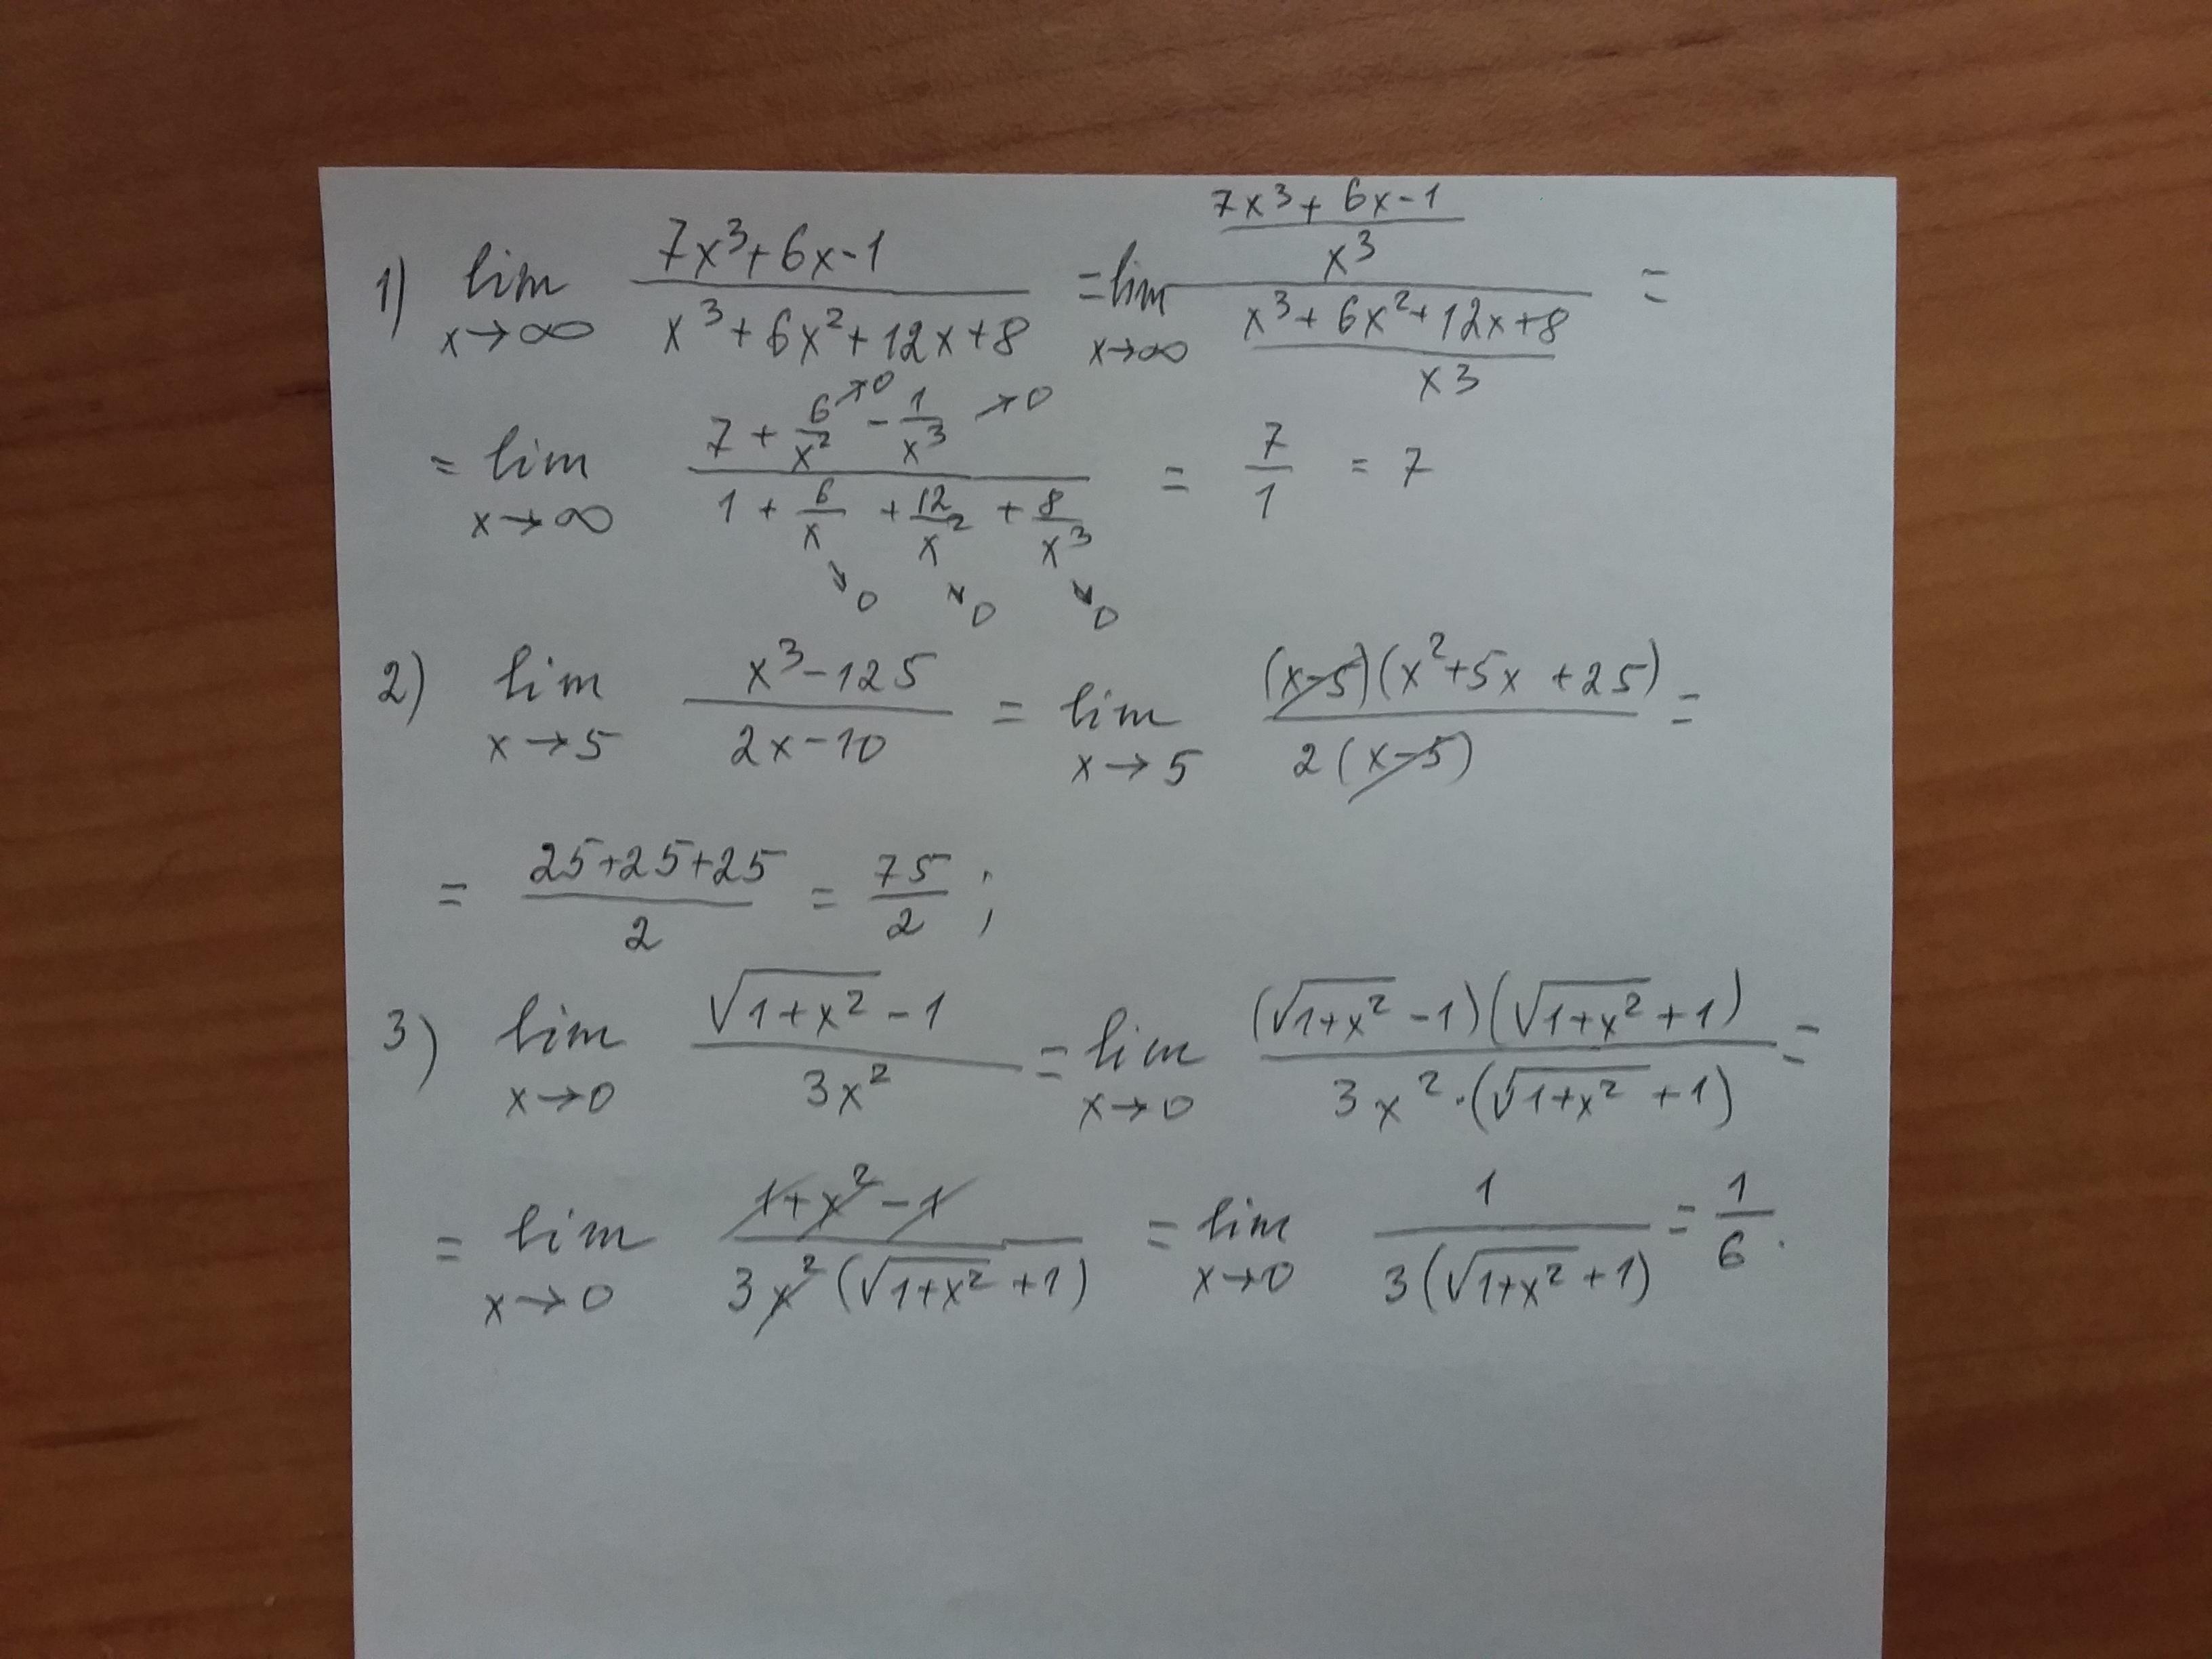 1) lim x→∞ (7x³+6x-1)/(x³+6x²+12x+8) = lim x→∞ ((7x³+6x-1)/x³)/((x³+6x²+12x+8)/x³) =
= lim x→∞ (7 + 6/x² →0 - 1/x³ →0)/(1 + 6/x →0 + 12/x² →0 + 8/x³ →0) = 7/1 = 7
2) lim x→5 (x³-125)/(2x-10) = lim x→5 ((x-5)(x²+5x+25))/(2(x-5)) =
= (25+25+25)/2 = 75/2 ;
3) lim x→0 (√(1+x²) -1)/(3x²) = lim x→0 ((√(1+x²) -1)(√(1+x²) +1))/(3x²·(√(1+x²) +1)) =
= lim x→0 (1+x²-1)/(3x²(√(1+x²) +1)) = lim x→0 1/(3(√(1+x²) +1)) = 1/6 .